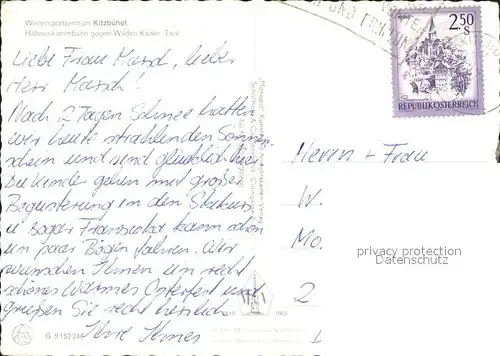 Wintersportzentrum Kitzbühel.
Hahnenkammbahn gegen Wilden Kaiser, Tirol
Liebe Frau Marsch, lieber
Herr Marsch!
Nach 2 Tagen Schnee hatten
wir heute strahlenden Sonnen-
schein und sind glücklich hier.
Die Kinder gehen mit großer
Begeisterung in den Skikurs
u sogar Franziska kann schon
ein paar Bögen fahren. Wir
wünschen Ihnen ein recht
schönes warmes Osterfest und
grüßen Sie recht herzlich
Ihre
G 9152246
2.50
S
REPUBLIK ÖSTERREICH
Herrn + Frau
W.
Mo.
2
privacy protection
Datenschutz